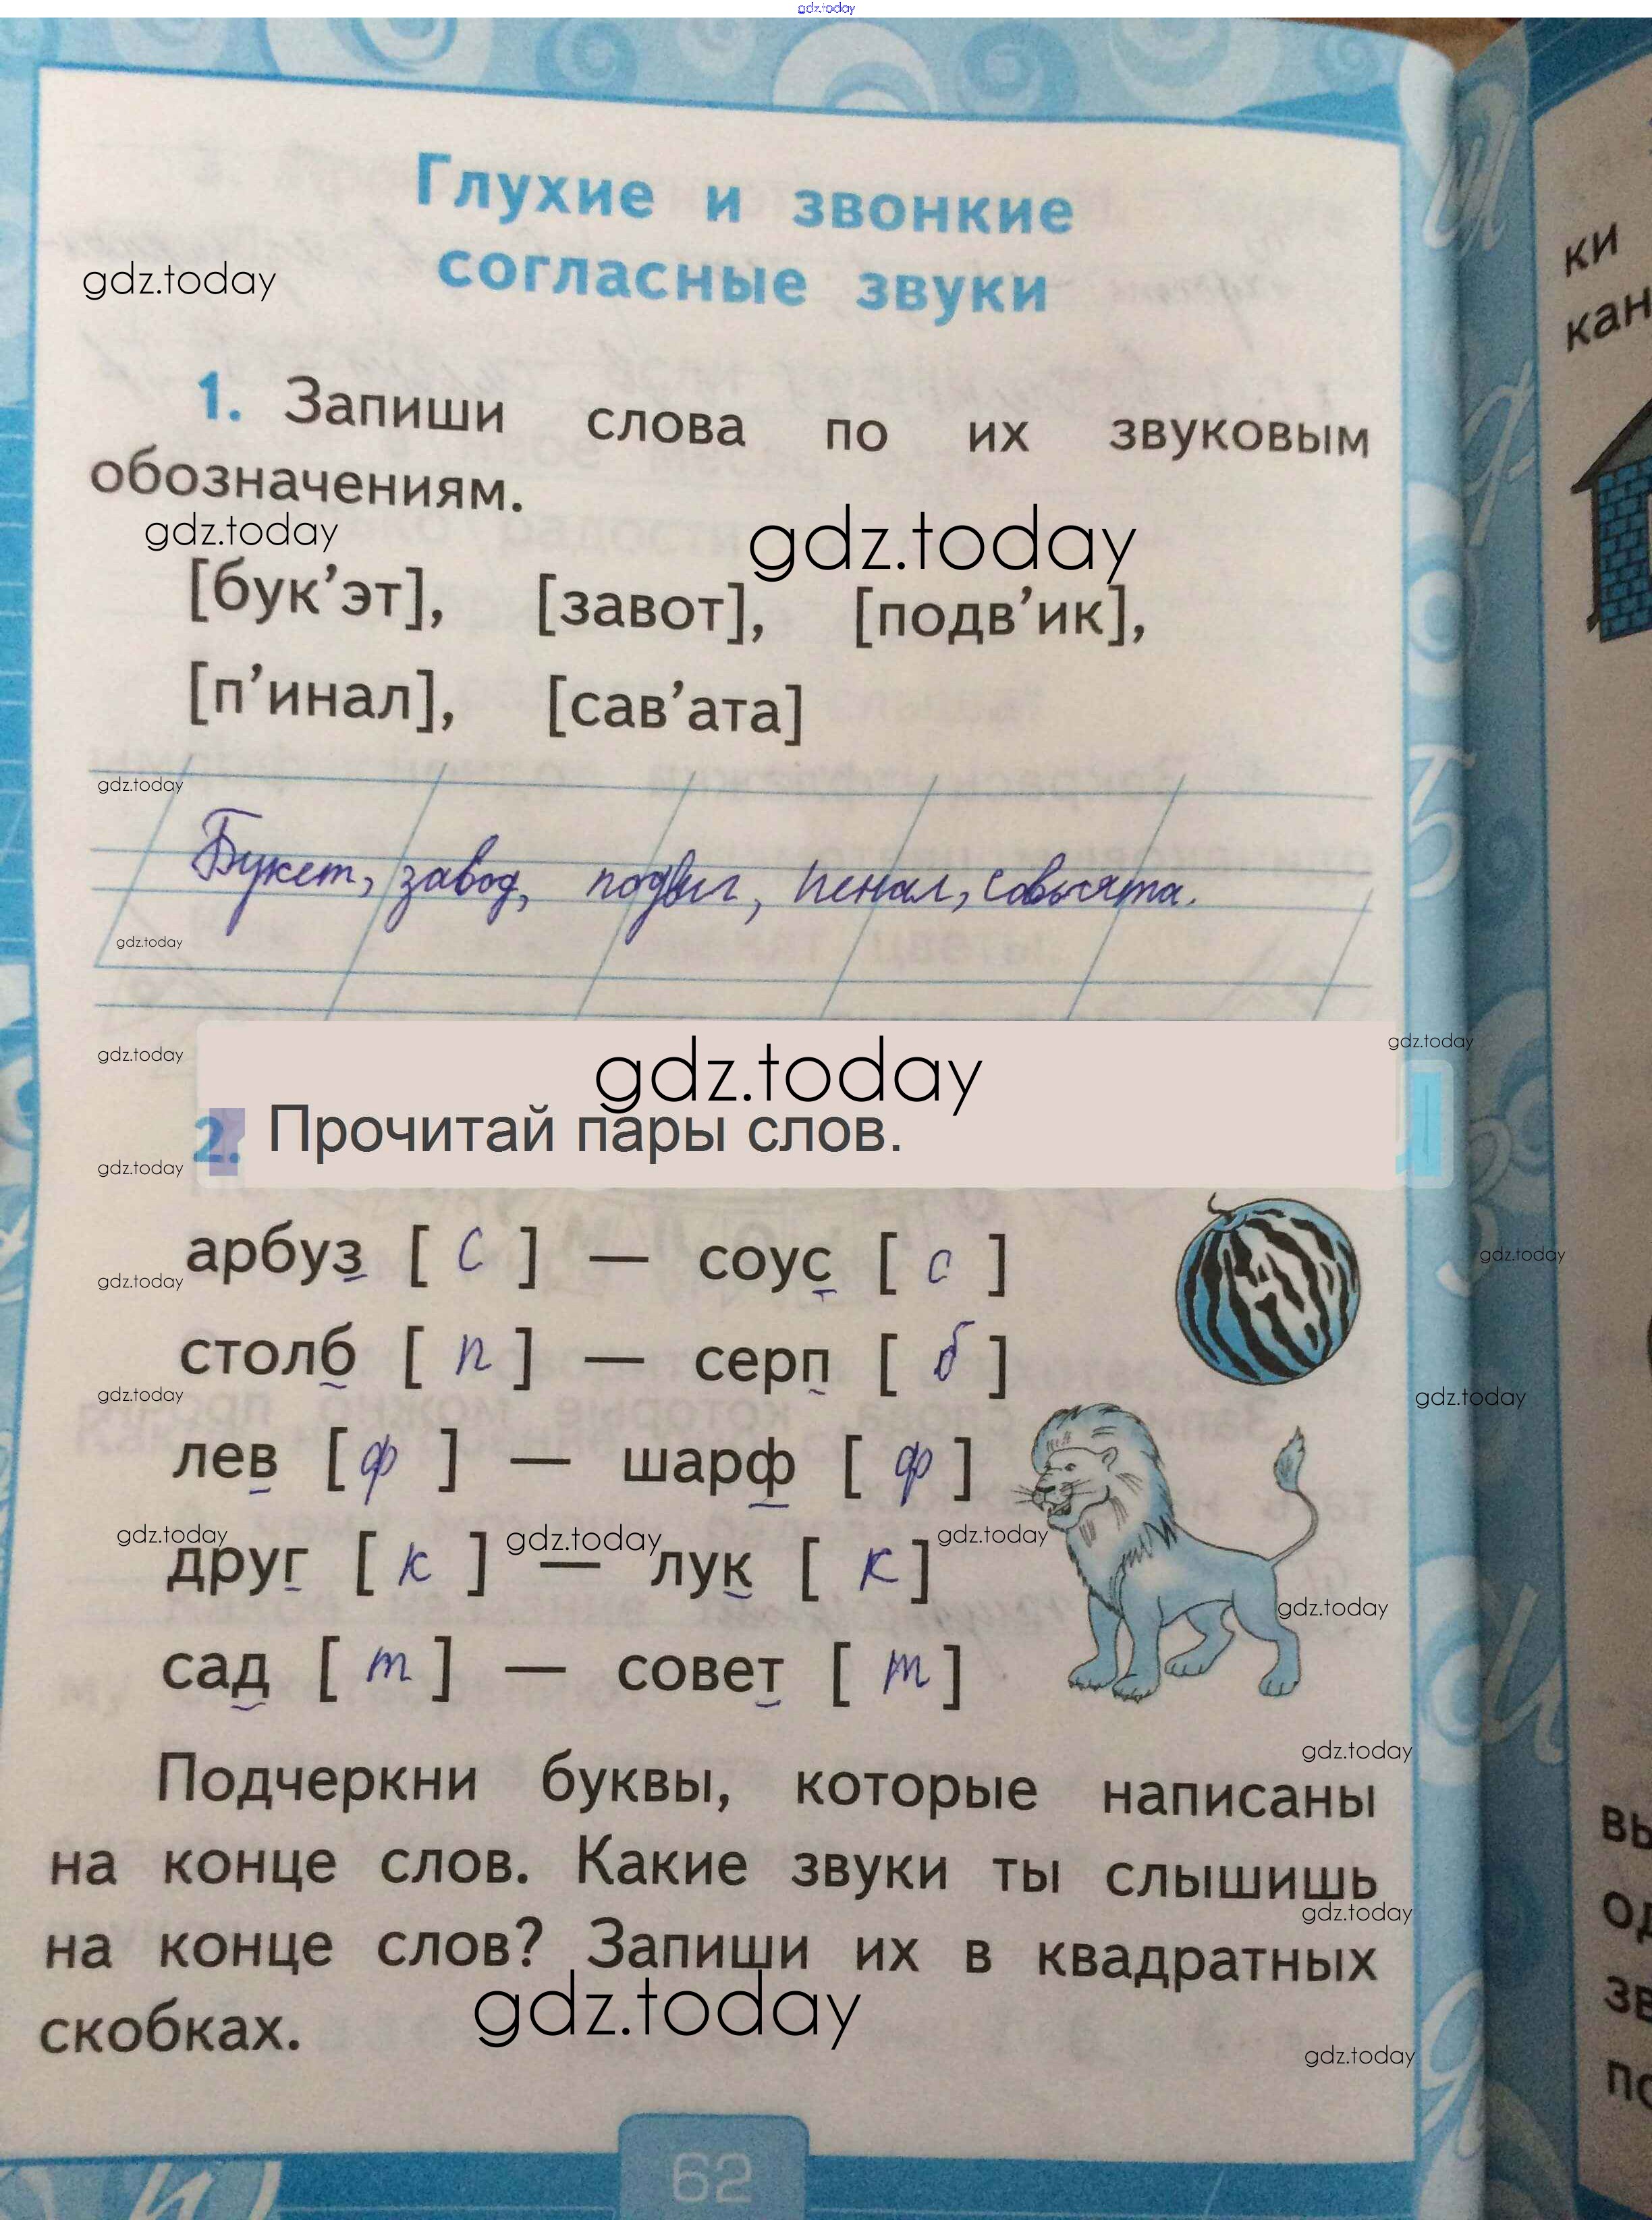 gdz.today
Глухие и звонкие
согласные звуки
gdz.today
ки
кан
1. Запиши слова по их звуковым
обозначениям.
gdz.today gdz.today
[бук’эт], [завот], [подв’ик],
[п’инал], [сав’ата]
gdz.today
Букет, завод, подвиг, пенал,
gdz.today
gdz.today gdz.today gdz.today
2. Прочитай пары слов.
gdz.today
арбуз [ с ] — соус [ с ]
gdz.today gdz.today
столб [ п ] — серп [ б ]
gdz.today gdz.today
лев [ ф ] — шарф [ ф ]
gdz.today gdz.today gdz.today
друг [ к ] — лук [ к ]
gdz.today
сад [ т ] — совет [ т ]
gdz.today
Подчеркни буквы, которые написаны
на конце слов. Какие звуки ты слышишь
gdz.today
на конце слов? Запиши их в квадратных
скобках.
gdz.today
gdz.today
вы
од
зв
по
62